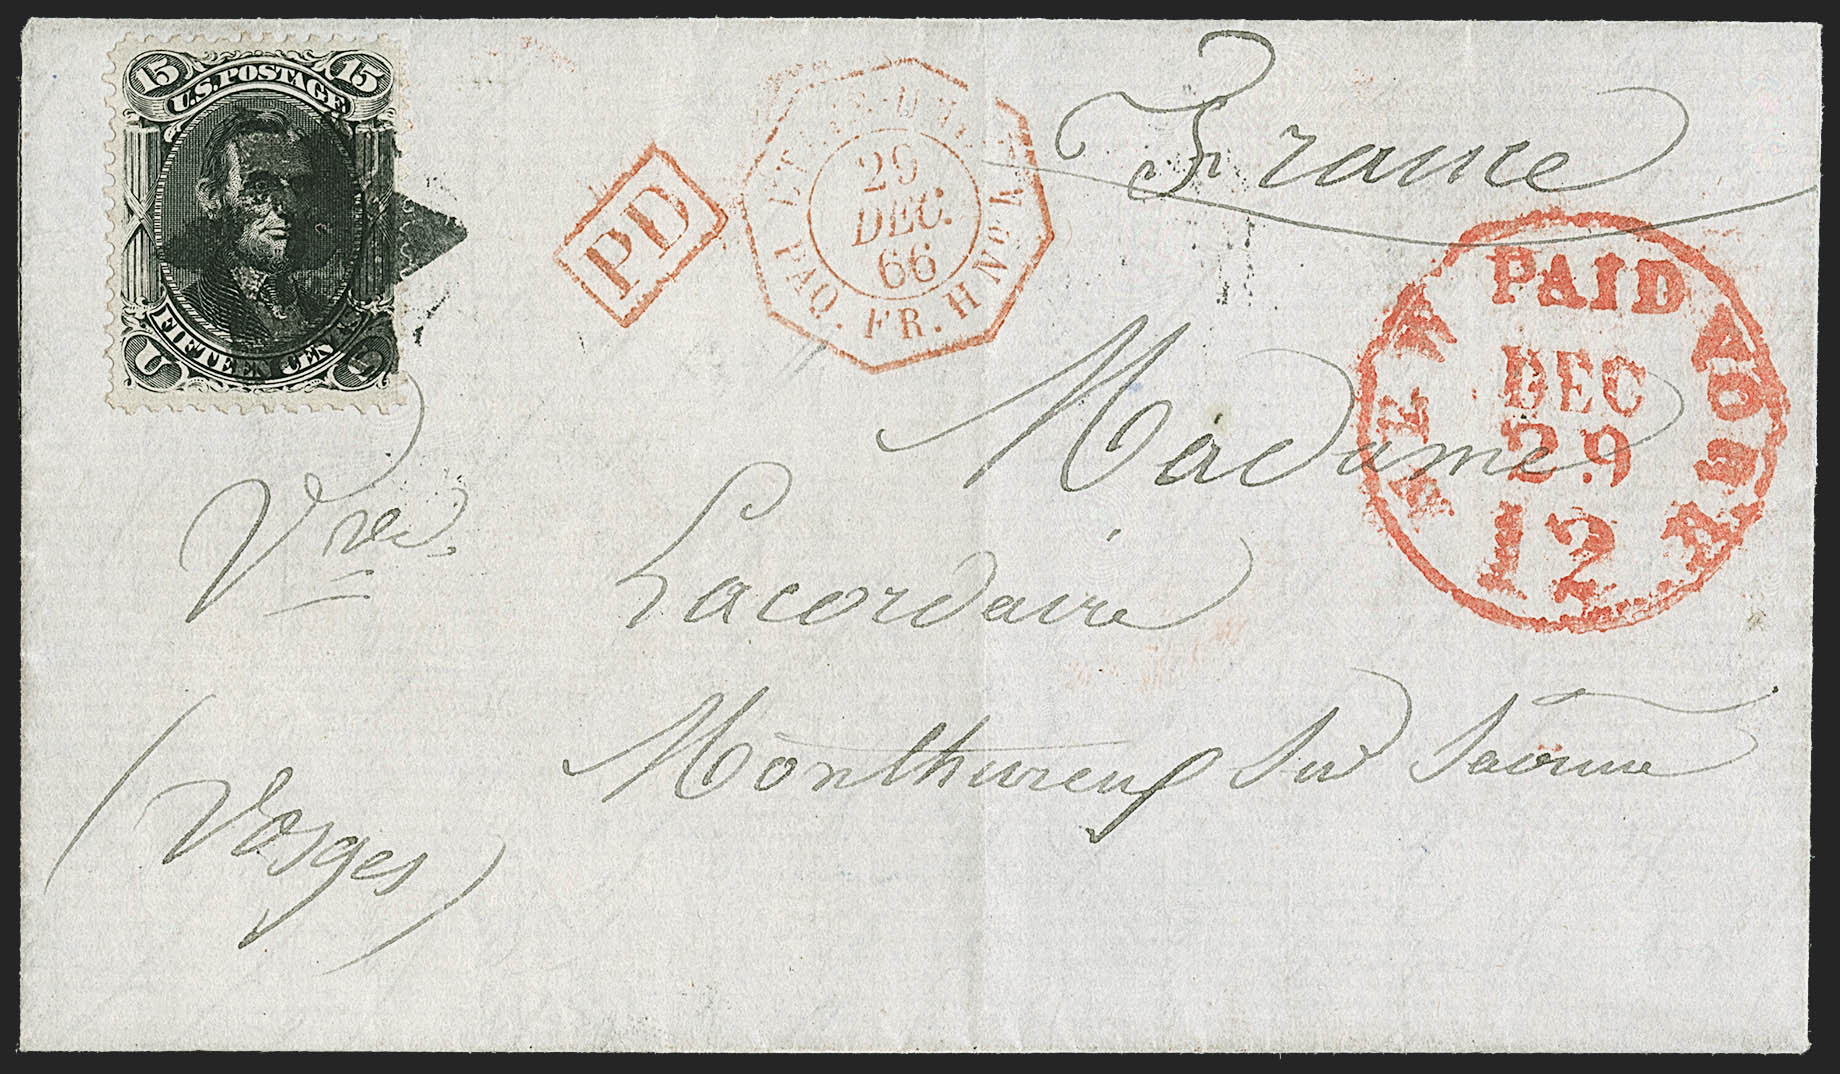 15 15
U.S. POSTAGE
FIFTEEN CEN
U
PD
ETATS-UNIS
29
DEC.
66
PAQ. FR. H No
France
NEW YORK
PAID
DEC
29
12
Madame
Vve.
Lacordaire
Monthureux sur Saône
(Vosges)